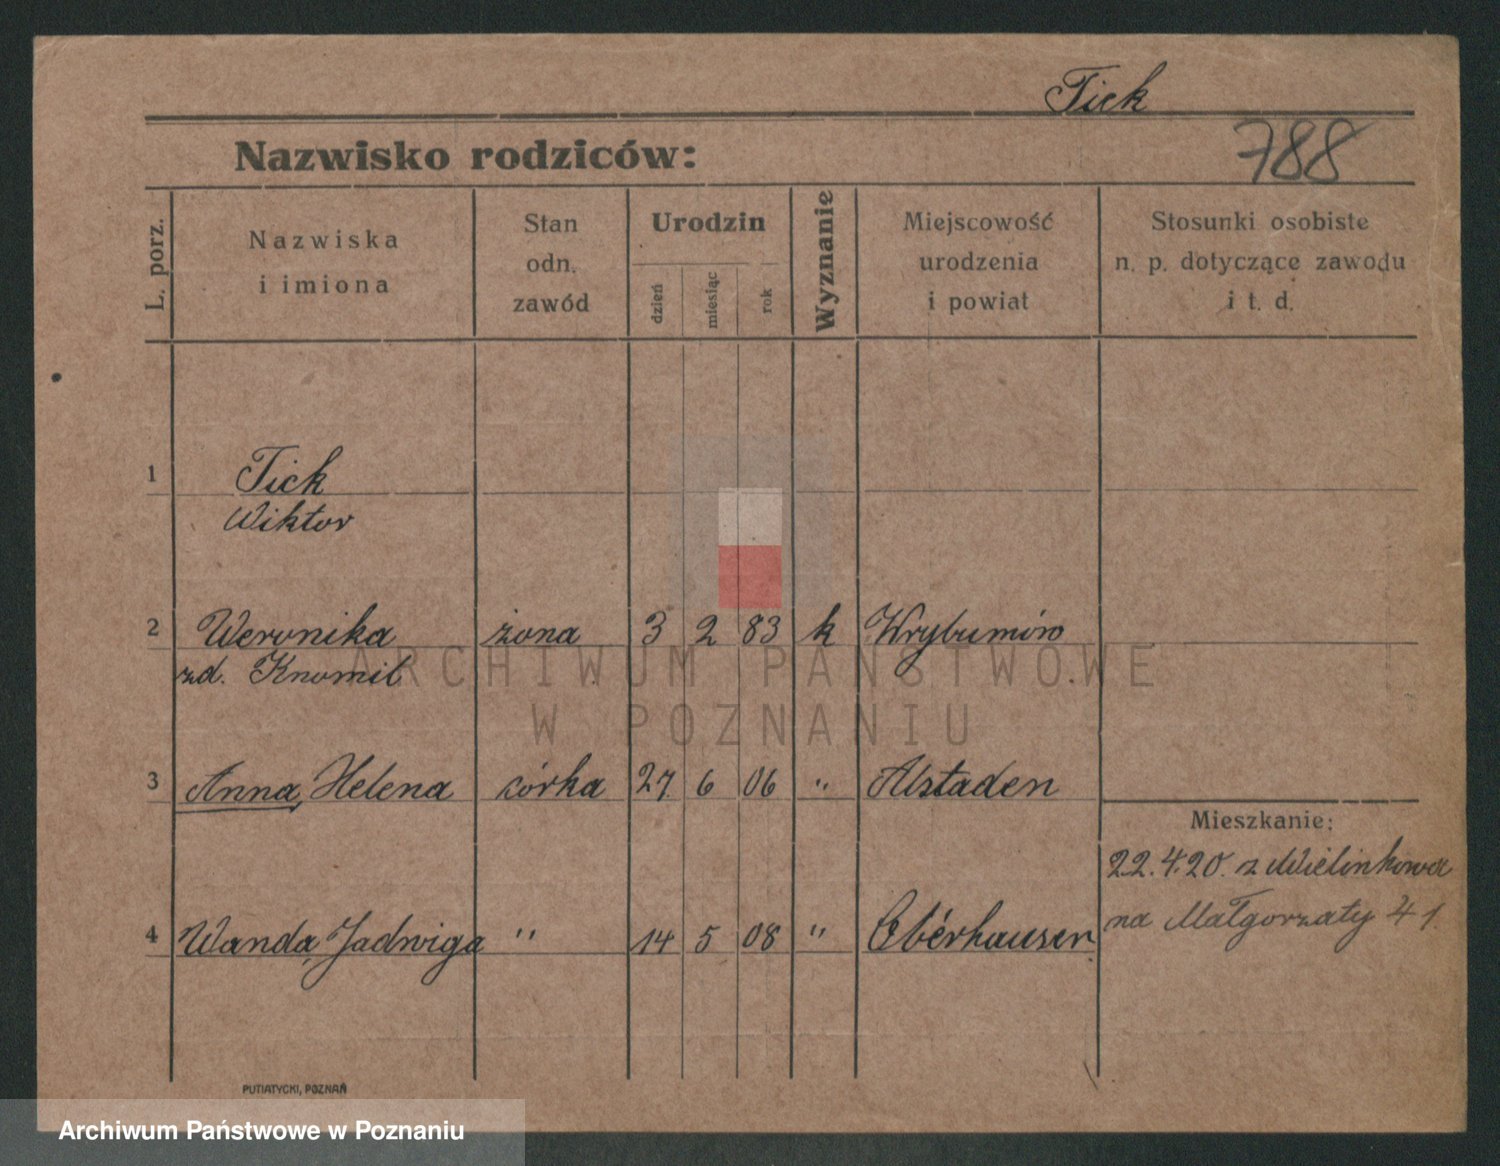 Tick
Nazwisko rodziców:
788
L. porz.
Nazwiska
i imiona
Stan
odn.
zawód
Urodzin
dzień
miesiąc
rok
Wyznanie
Miejscowość
urodzenia
i powiat
Stosunki osobiste
n. p. dotyczące zawodu
i t. d.
1 Tick
Wiktor
2 Weronika żona 3 2 83 k
zd.
ARCHIWUM PAŃSTWOWE
W POZNANIU
3 Anna, Helena córka 27 6 06 " Alstaden
Mieszkanie:
22.4.20. z
4 Wanda, Jadwiga " 14 5 08 " Oberhausen
na Małgorzaty 41
PUTIATYCKI, POZNAŃ
Archiwum Państwowe w Poznaniu